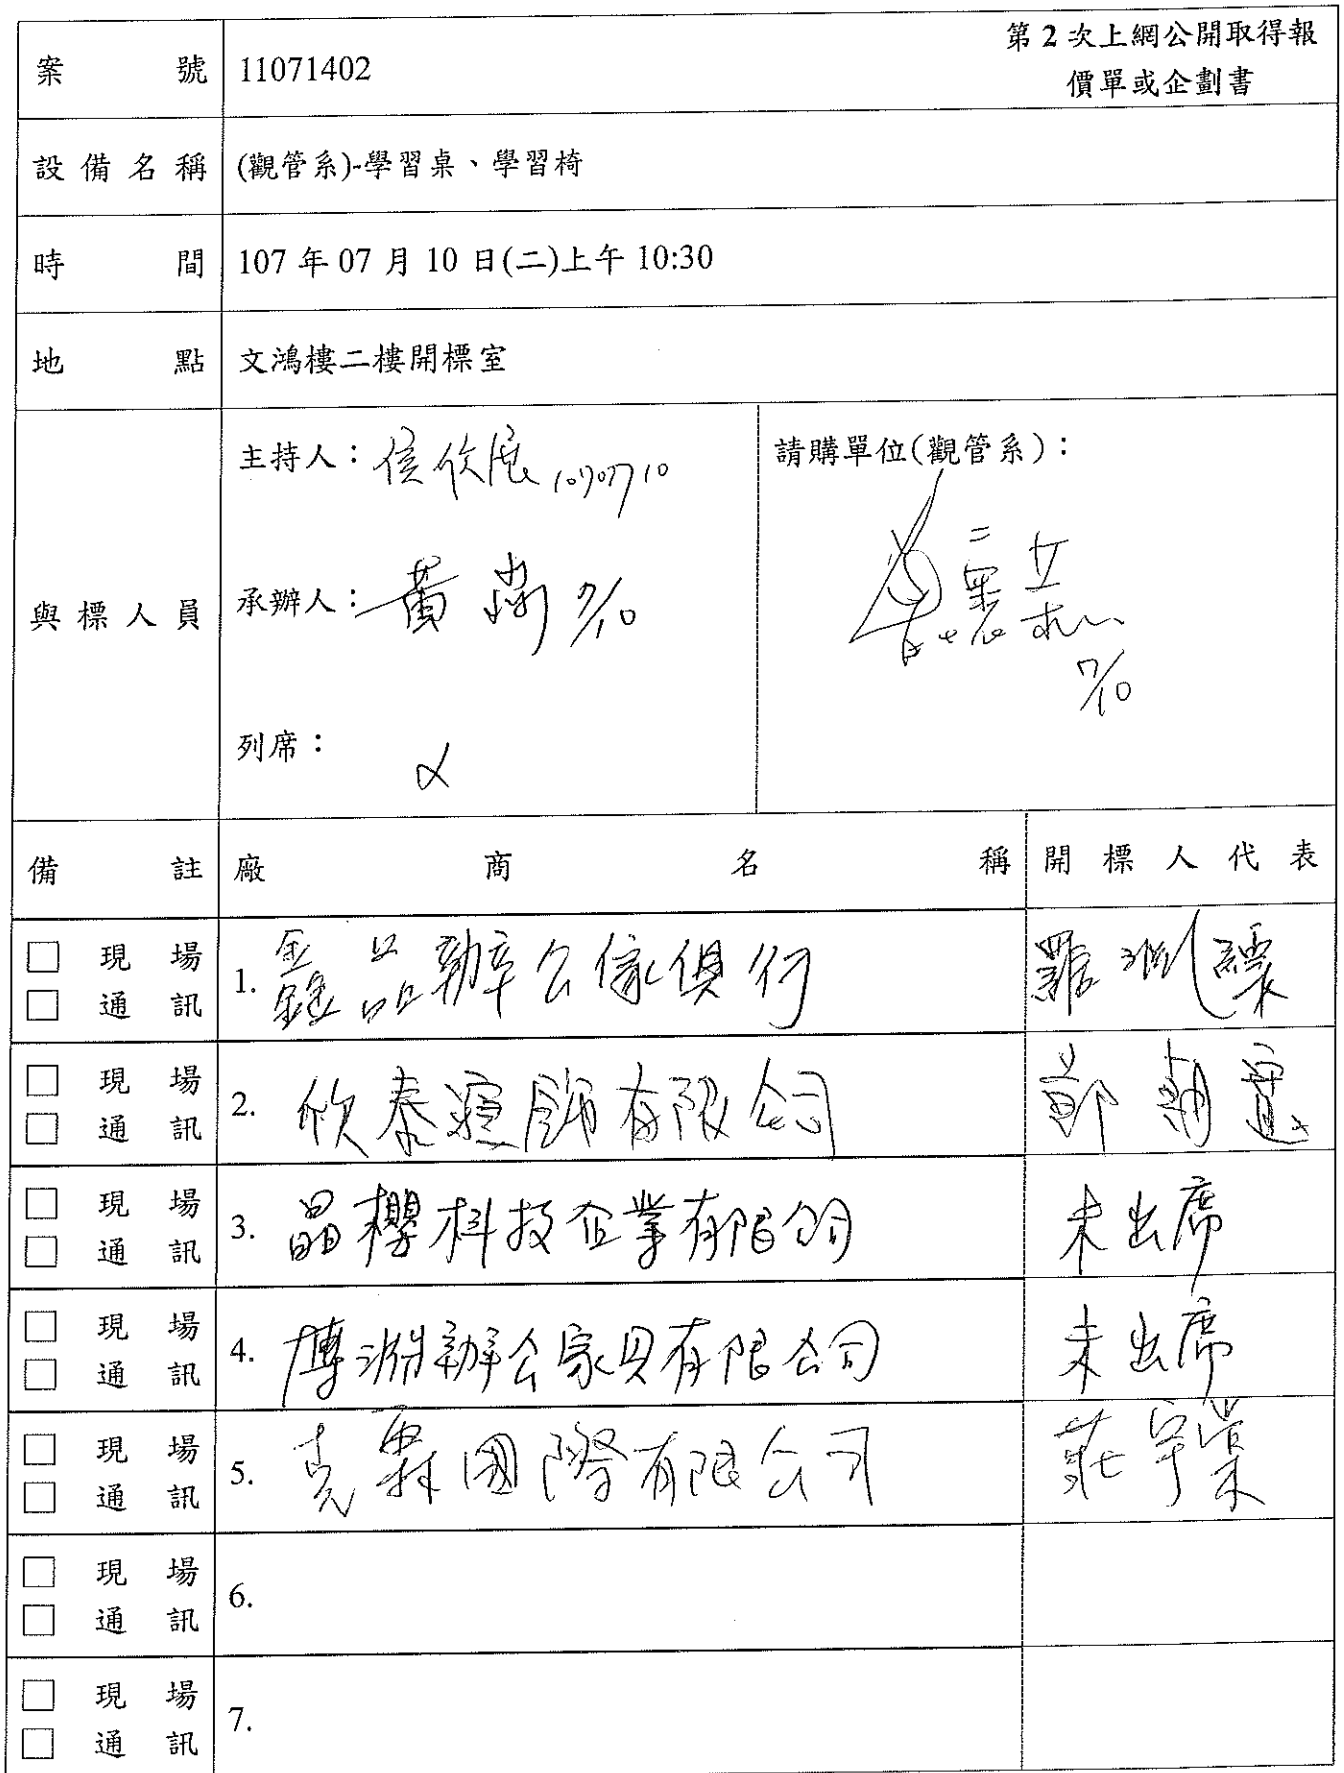 案號 11071402 第 2 次上網公開取得報
價單或企劃書
設備名稱 (觀管系)-學習桌、學習椅
時間 107 年 07 月 10 日(二)上午 10:30
地點 文鴻樓二樓開標室
與標人員
主持人：侯欣展 1070710
承辦人：黃 7/10
列席：
請購單位(觀管系)：
7/10
備註 廠商名稱 開標人代表
□ 現場
□ 通訊
1. 鑫品辦公傢俱行 羅
□ 現場
□ 通訊
2. 欣泰寢飾有限公司 鄭
□ 現場
□ 通訊
3. 晶櫻科技企業有限公司 未出席
□ 現場
□ 通訊
4. 博淵辦公家具有限公司 未出席
□ 現場
□ 通訊
5. 克霖國際有限公司 莊宇棠
□ 現場
□ 通訊
6.
□ 現場
□ 通訊
7.